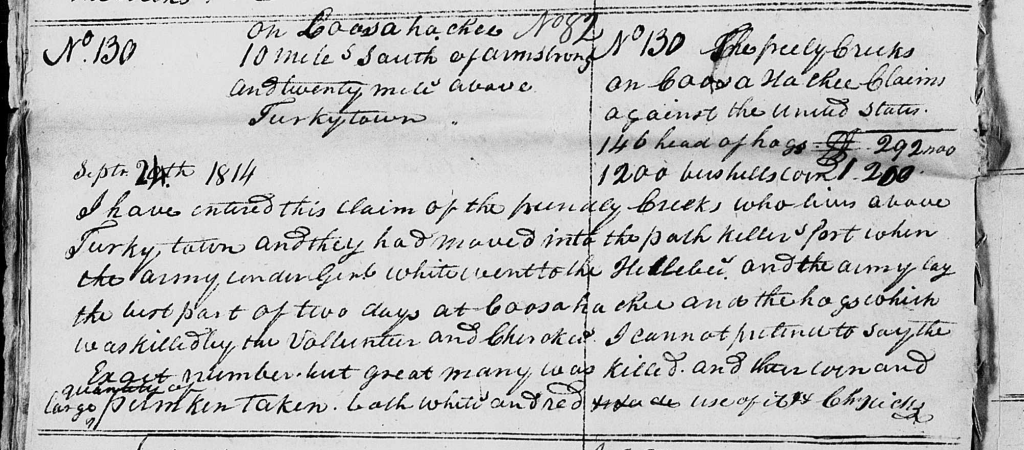 No. 130
on Coosahachee No 82
10 miles South of armstrong
and twenty miles above
Turkytown
No 130 The freely Creeks
on Coosa Hachee Claims
against the United States.
146 head of hogs 292
1200 bushells corn 1.200
Septr 24th 1814
I have entered this Claim of the frendly Creeks who lives above
Turky, town and they had moved into the path killers fort when
the army under Genl white went to the Hillebes, and the army lay
the best part of two days at Coosahachee and the hogs which
was killed by the Vollunters and Cherokees. I cannot pretend to say the
Exact number. but great many was killed. and their corn and
large quantity of pumken taken. both white and red made use of it & Chickes